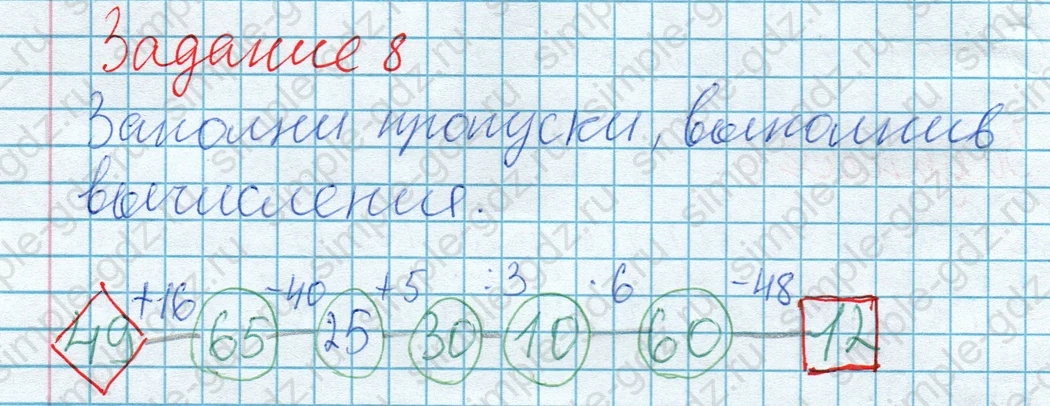 Задание 8
Заполни пропуски, выполнив
вычисления.
+16 -40 +5 :3 ·6 -48
49 65 25 30 10 60 12
simple-gdz.ru